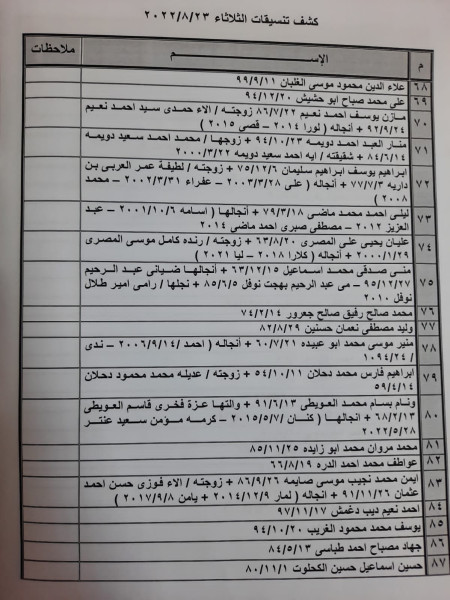 كشف تنسيقات الثلاثاء ٢٠٢٢/٨/٢٣
م الإســـم ملاحظات
٦٨ علاء الدين محمود موسى الغلبان ٩٩/٩/١١
٦٩ على محمد صباح ابو حشيش ٩٤/١٢/٢٠
٧٠ مازن يوسف احمد نعيم ٨٦/٧/٢٢ زوجته / الاء حمدى سيد احمد نعيم
٩٢/٩/٢٤ + أنجاله ( لورا ٢٠١٤ – قصي ٢٠١٥ )
٧١ منار العبد احمد دويمه ٩٤/١٠/٢٣ + زوجها / محمد احمد سعيد دويمه
٨٤/٦/١٤ + شقيقته / ايه احمد سعيد دويمه ٢٠٠٠/٣/٢٢
٧٢ ابراهيم يوسف ابراهيم سليمان ٧٥/١٢/٦ + زوجته / لطيفة عمر العربى بن
داريه ٧٧/٧/٣ + أنجاله ( على ٢٠٠٣/٣/٢٨ – عفراء ٢٠٠٢/٣/٣١ – محمد
٢٠٠٨ )
٧٣ ليلى احمد محمد ماضى ٧٩/٣/١٨ + أنجالها ( اسامه ٢٠٠١/١٠/٦ – عبد
العزيز ٢٠١٢ – مصطفى صبرى احمد ماضى ٢٠١٤
٧٤ عليان يحيى على المصرى ٦٣/٨/٢٠ + زوجته / رنده كامل موسى المصرى
٢٠٠٠/١/٢٩ + أنجاله ( كلارا ٢٠١٨ – ليا ٢٠٢١ )
٧٥ منى صدقى محمد اسماعيل ٦٣/١٢/١٥ + أنجالها ضيائى عبد الرحيم
٩٥/١٢/٢٧ – مى عبد الرحيم بهجت نوفل ٨٥/٦/٥ + نجلها / رامى امير طلال
نوفل ٢٠١٠
٧٦ محمد صالح رفيق صالح جعرور ٧٤/٢/١٤
٧٧ وليد مصطفى نعمان حسنين ٨٢/٨/٢٩
٧٨ منير موسى محمد ابو عبيده ٦٠/٧/٢١ + أنجاله ( احمد /٢٠٠٦/٩/١٤ – ندى
/ ١٠٩٤/٢٤
٧٩ ابراهيم فارس محمد دحلان ٥٤/١٠/١١ + زوجته / عديله محمد محمود دحلان
٥٩/٤/١٤
٨٠ ونام بسام محمد العويطى ٩١/٦/١٣ + والتها عزة فخرى قاسم العويطى
٦٨/٢/١٣ + انجالها ( كنان /٢٠١٥/٥/٧ – كرمه مؤمن سعيد عنتر
٢٠٢٢/٥/٢٨
٨١ محمد مروان محمد ابو زايده ٨٥/١١/٢٥
٨٢ عواطف محمد احمد الدره ٦٦/٨/١٩
٨٣ ايمن محمد نجيب موسى صايمه ٨٦/٩/٢٦ + زوجته / الاء فوزى حسن احمد
عثمان ٩١/١١/٢٦ + انجاله ( لمار ٢٠١٤/١٢/٩ + يامن ٢٠١٧/٩/٨ )
٨٤ احمد نعيم ديب دغمش ٩٧/١١/١٧
٨٥ يوسف محمد محمود الغريب ٩٤/١٠/٢٠
٨٦ جهاد مصباح احمد طباسى ٨٤/٥/١٣
٨٧ حسين اسماعيل حسين الكحلوت ٨٠/١١/١